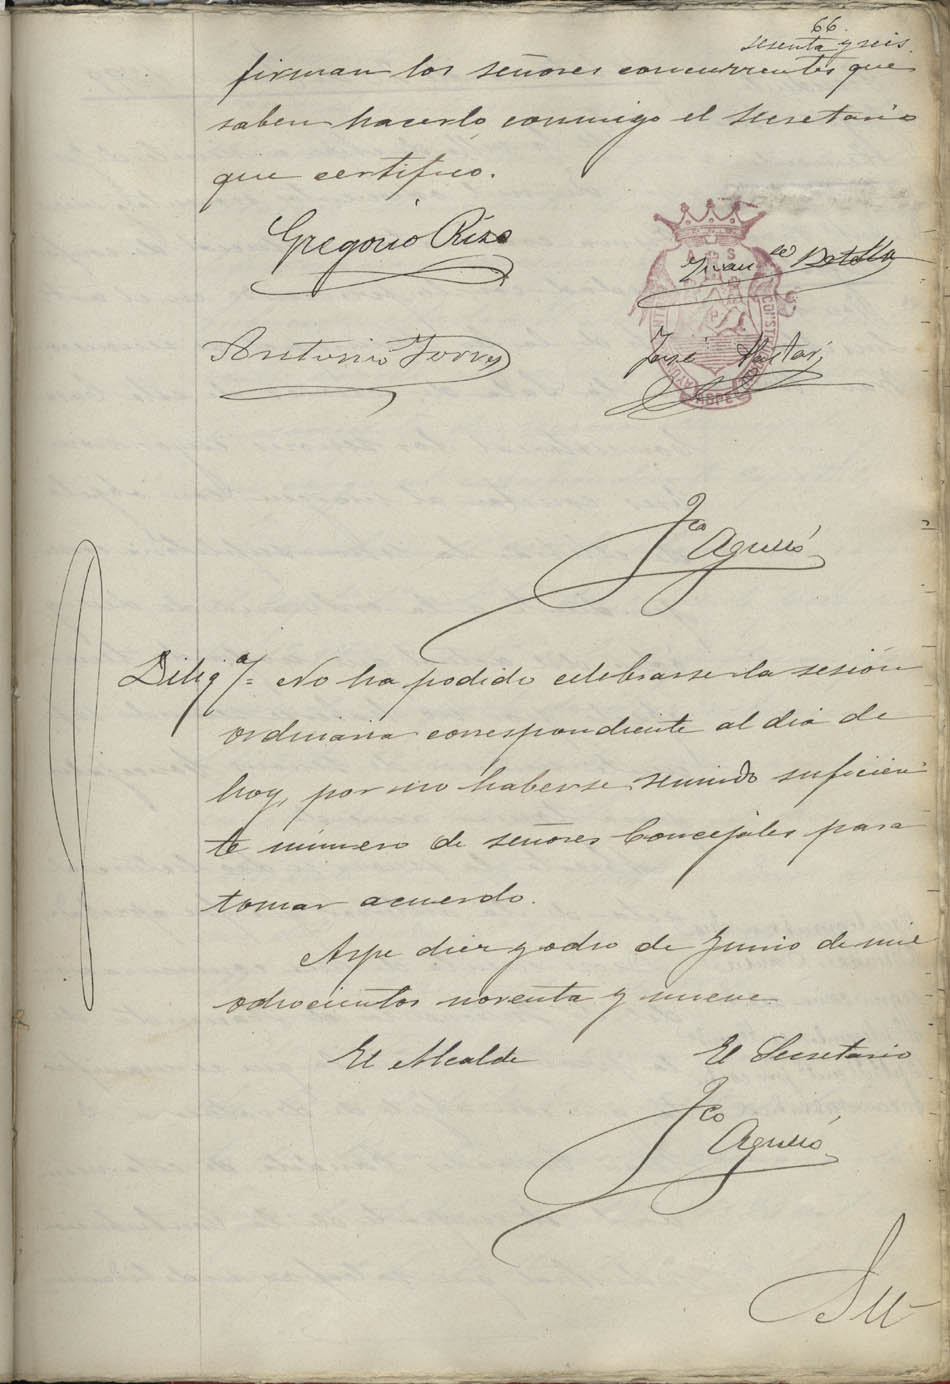 66.
sesenta y seis.
firman los señores concurrentes que
saben hacerlo, conmigo el Secretario
que certifico.
Gregorio Rizo
Juan Botella
Antonio Torres
José Pastor
AYU CONST ASPE
Fco Agulló
Diliga/= No ha podido celebrarse la sesión
ordinaria correspondiente al día de
hoy, por no haberse reunido suficien
te número de señores Concejales para
tomar acuerdo.
Aspe diez y ocho de Junio de mil
ochocientos noventa y nueve.
El Alcalde El Secretario
Fco Agulló